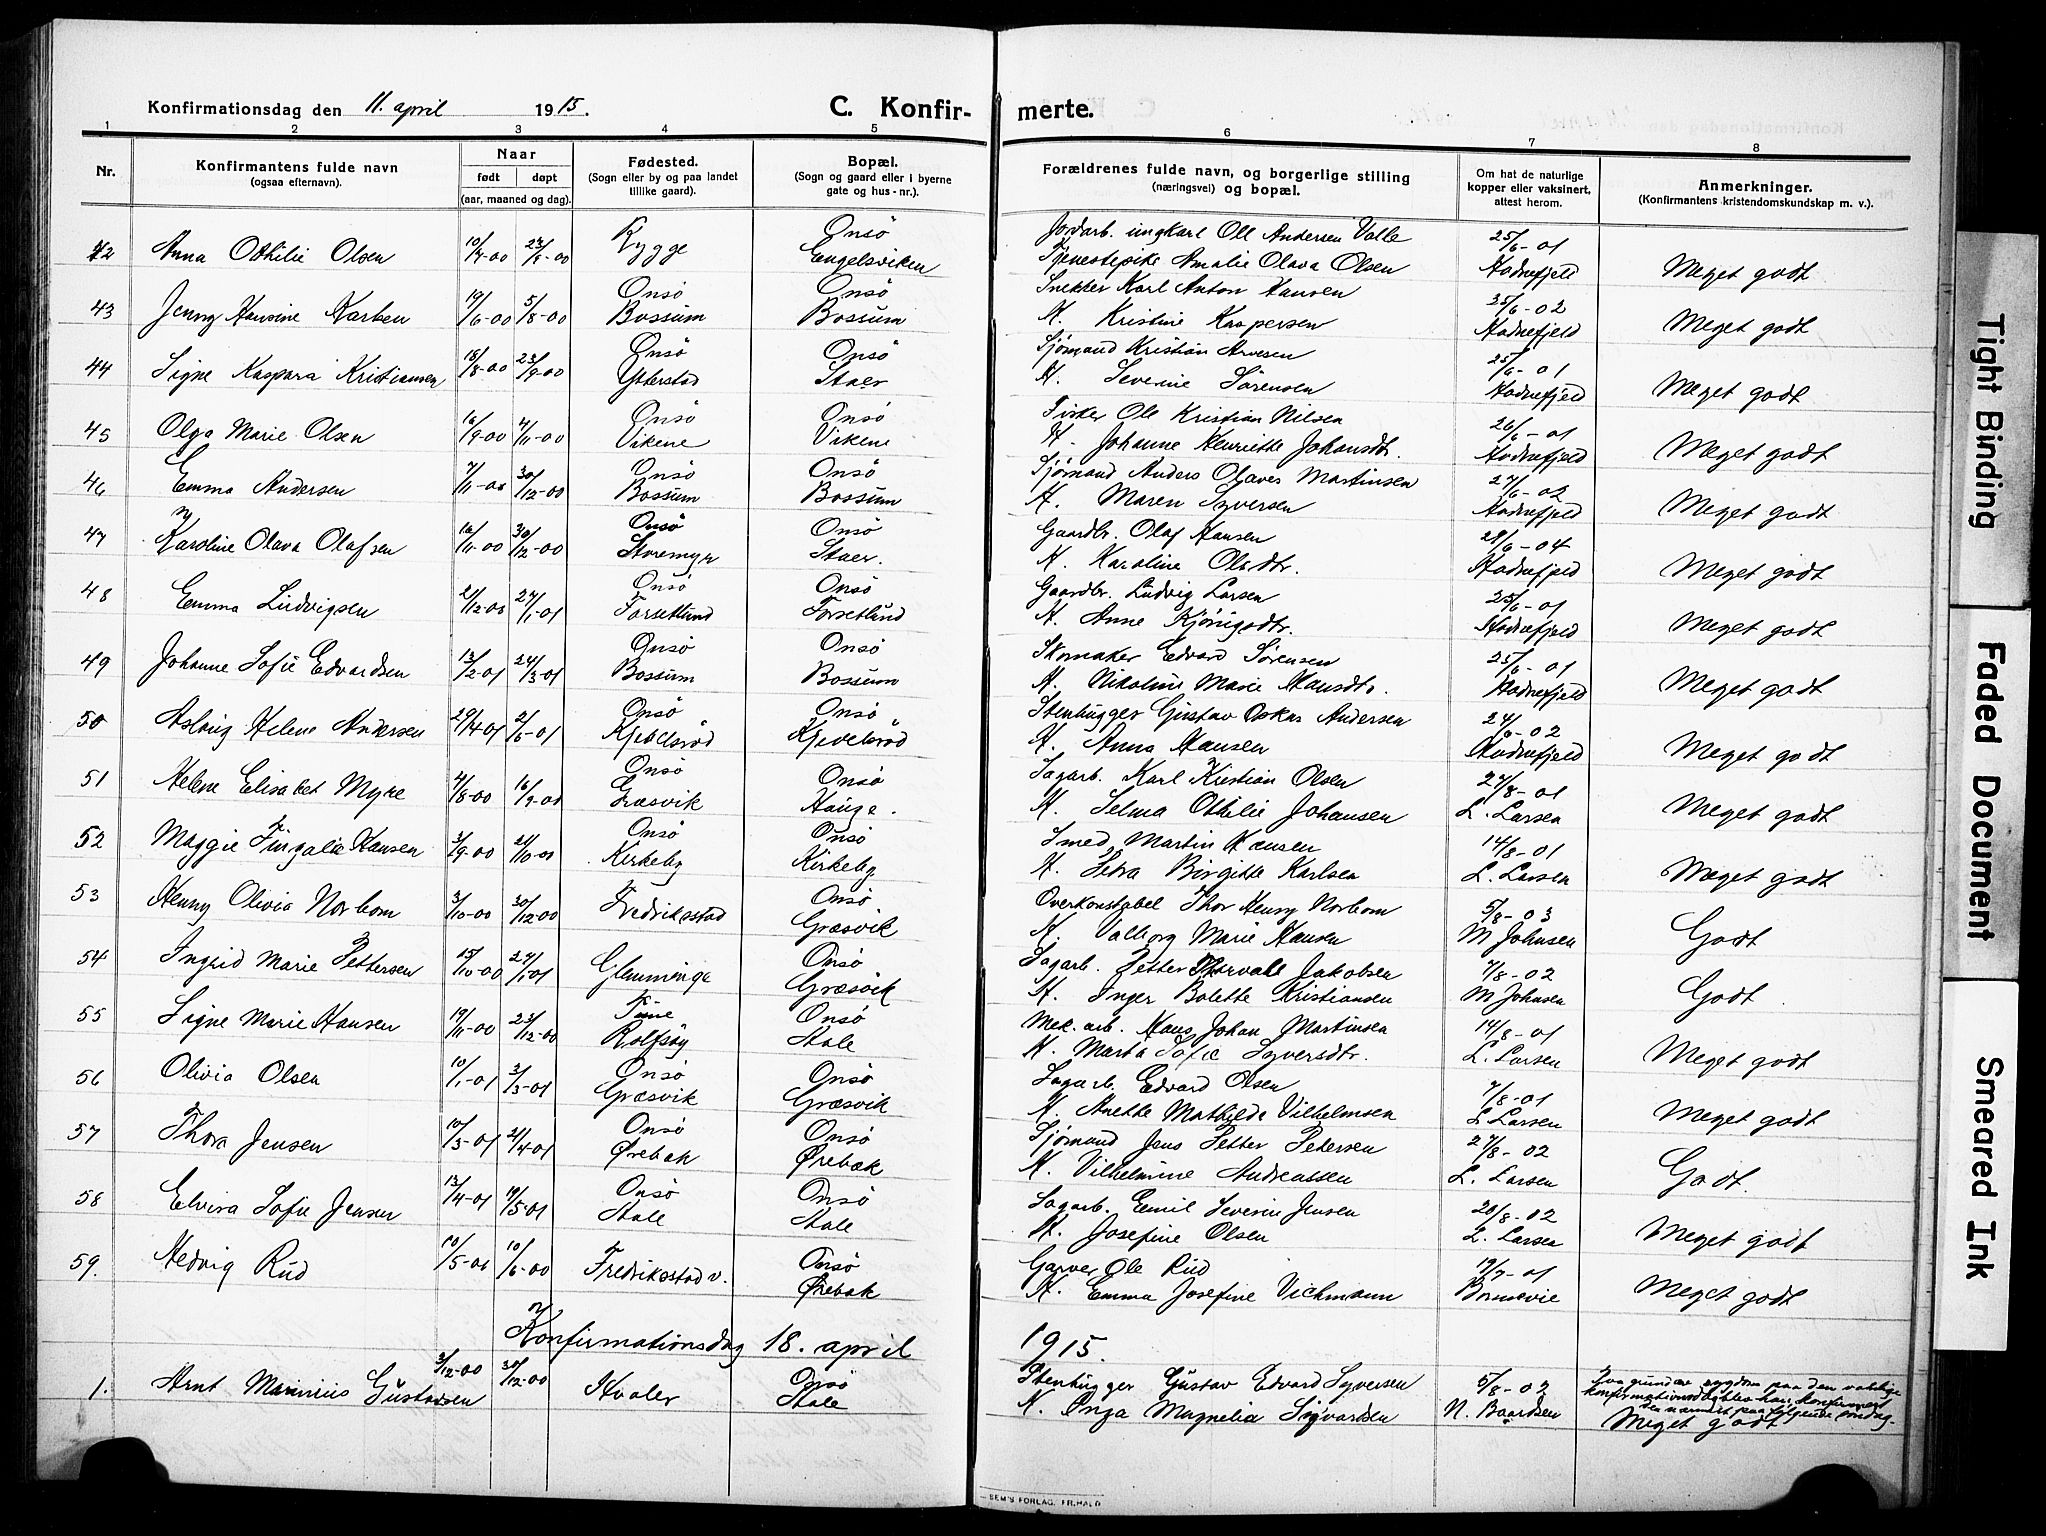 Konfirmationsdag den 11. april 1915.
C. Konfirmerte.
1 2 3 4 5 6 7 8
Nr.
Konfirmantens fulde navn
(ogsaa efternavn).
Naar
født døpt
(aar, maaned og dag).
Fødested.
(Sogn eller by og paa landet
tillike gaard).
Bopæl.
(Sogn og gaard eller i byerne
gate og hus - nr.).
Forældrenes fulde navn, og borgerlige stilling
(næringsvei) og bopæl.
Om hat de naturlige
kopper eller vaksinert,
attest herom.
Anmerkninger.
(Konfirmantens kristendomskundskap m. v.).
42 Anna Othilie Olsen Rygge Onsö Engelsviken
Jordarb. ungkarl Ole Andersen Valle 25/6-01
Tjenestepike Amalie Olava Olsen Hodnefjeld Meget godt
43 Jenny Hansine Karlsen 19/6-00 5/8-00 Onsö Bossum Onsö Bossum
Snekker Karl Anton Hansen 25/6-02
H. Kristine Kaspersen Hodnefjeld Meget godt
44 Signe Kaspara Kristiansen 18/8-00 23/9-00 Onsö Ytterstad Onsö Staer
Sjömand Kristian Arvesen 25/6-01
H. Severine Sörensen Hodnefjeld Meget godt
45 Olga Marie Olsen 16/9-00 4/11-00 Onsö Vikene Onsö Vikene
Fisker Ole Kristian Nilsen 26/6-01
H. Johanne Henriette Johansdtr. Hodnefjeld Meget godt
46 Emma Andersen 7/11-00 30/12-00 Onsö Bossum Onsö Bossum
Sjömand Anders Olaves Martinsen 27/6-02
H. Maren Syversen Hodnefjeld Meget godt
47 Karoline Olava Olafsen 16/11-00 30/12-00 Onsö Storemyr Onsö Staer.
Gaardbr. Olaf Hansen 28/6-04
H. Karoline Olsdtr. Hodnefjeld Meget godt
48 Emma Ludvigsen 21/12-00 27/1-01 Onsö Forsetlund Onsö Forsetlund
Gaardbr. Ludvig Larsen 25/6-01
H. Anne Kjönigsdtr. Hodnefjeld Meget godt
49 Johanne Sofie Edvardsen 13/2-01 24/3-01 Onsö Bossum Onsö Bossum
Skomaker Edvard Sörensen 25/6-01
H. Nikoline Marie Hansdtr. Hodnefjeld Meget godt
50 Aslaug Helene Andersen 29/4-01 2/6-01 Onsö Kjölelsröd Onsö Kjölelsröd
Stenhugger Gustav Oskar Andersen 24/6-02
H. Anna Hansen Hodnefjeld Meget godt
51 Helene Elisabet Myre 4/8-00 16/9-00 Onsö Græsvik Onsö Hauge.
Sagarb. Karl Kristian Olsen 27/8-01
H. Selma Othilie Johansen L. Larsen Meget godt
52 Maggie Fingalie Hansen 3/9-00 21/10-00 Onsö Kirkeby Onsö Kirkeby
Smed Martin Hansen 14/8-01
H. Petra Birgitte Karlsen L. Larsen Meget godt
53 Henny Olivia Norbom 3/10-00 30/12-00 Fredriksstad Onsö Græsvik
Overkonstabel Thor Henry Norbom 5/8-03
H. Valborg Marie Hansen M Johnsen Godt
54 Ingrid Marie Pettersen 15/10-00 27/1-01 Glemminge Onsö Græsvik
Sagarb. Petter Thorvald Jakobsen 7/8-02
H. Inger Bolette Kristiansen M Johnsen Godt
55 Signe Marie Hansen 19/11-00 23/12-00 Tune Rolfsöy Onsö Aale
Mek. arb. Hans Johan Martinsen 14/8-01
H. Marta Sofie Syversdtr. L. Larsen Meget godt
56 Olivia Olsen 10/1-01 3/3-01 Onsö Græsvik Onsö Græsvik
Sagarb. Edvard Olsen 7/8-01
H. Anette Mathilde Vilhelmsen L Larsen Meget godt
57 Thora Jensen 10/3-01 21/4-01 Onsö Ørebæk Onsö Ørebæk
Sjömand Jens Petter Pedersen 27/8-02
H. Vilhelmine Andreassen L. Larsen Godt.
58 Elvira Sofie Jensen 13/4-01 19/5-01 Onsö Aale Onsö Aale
Sagarb. Emil Severin Jensen 20/8-02
H. Josefine Olsen L. Larsen Meget godt
59. Hedvig Rud 10/5-00 10/6-00 Fredriksstad v. Onsö Ørebæk
Garver Ole Rud 19/7-01
H. Emma Josefine Vichmann Meget godt
Konfirmationsdag 18. april 1915.
1. Arnt Marinius Gustavsen 3/12-00 30/12-00 Hvaler Onsö Aale
Stenhugger Gustav Edvard Syversen 5/8-02
H. Inga Magnelia Sigvardsen N. Baardsen
Paa grund av sygdom paa den vanlige
konfirmationsdag blev han konfirmert
den nærmest paafølgende søndag.
Meget godt
SEM'S FORLAG, FR.HALD
Tight Binding
Faded Document
Smeared Ink